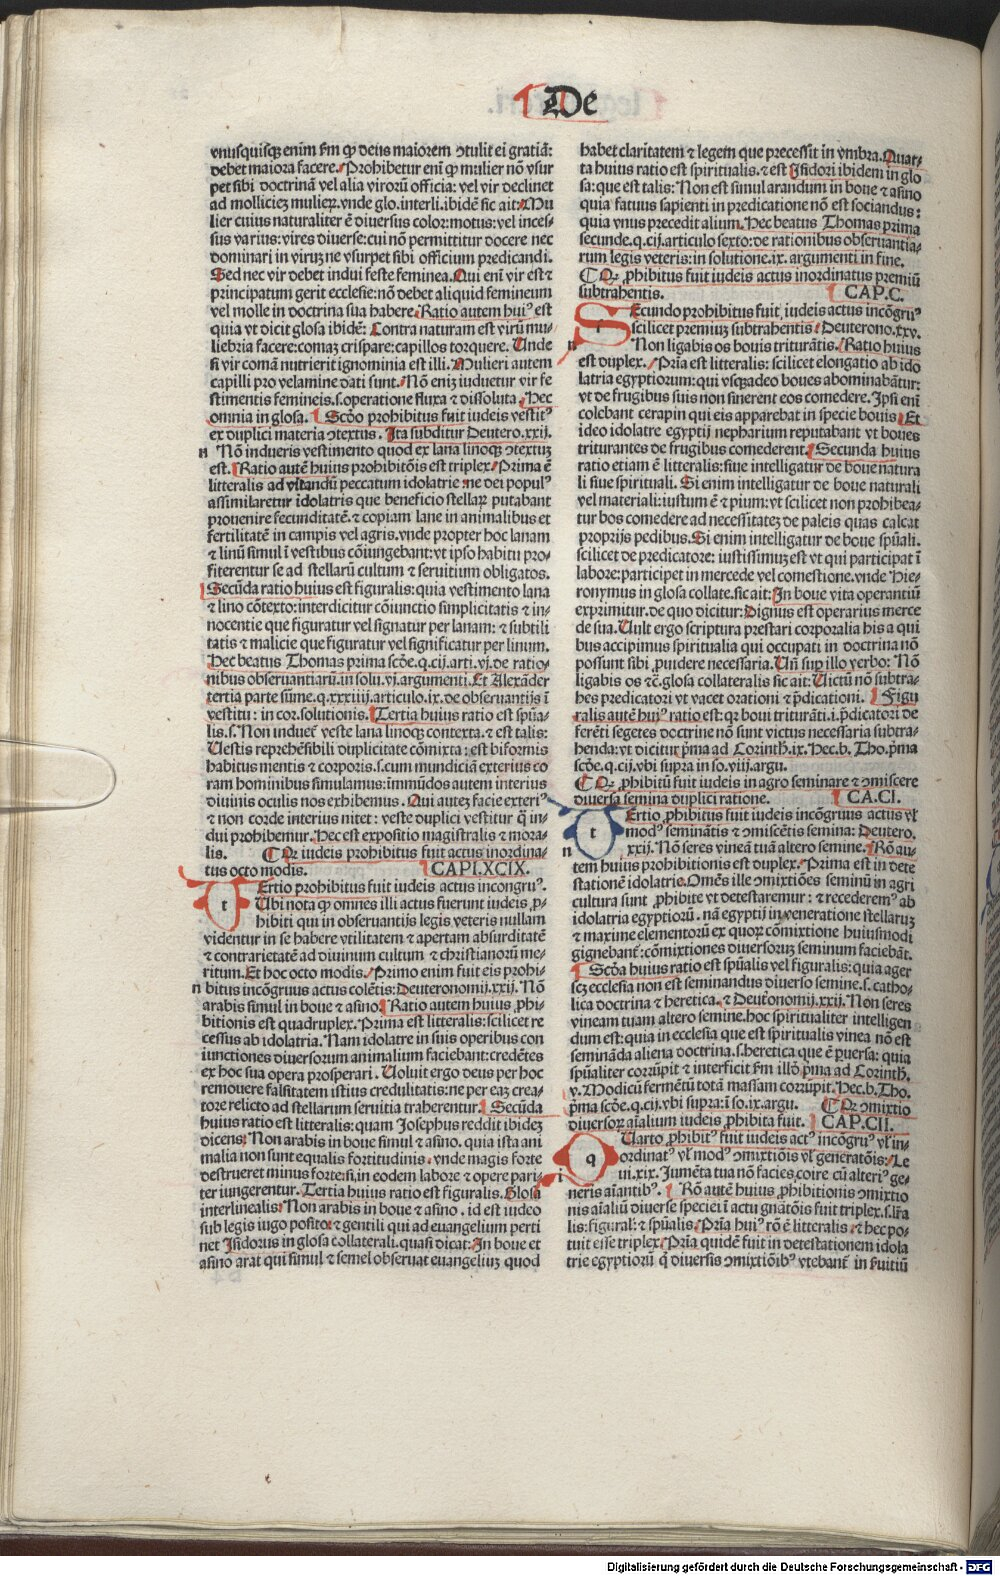 De
vnusquisqꝫ enim ẜm ꝙ deus maiorem ↄtulit ei gratiā:
debet maiora facere. Prohibetur eni ꝙ mulier nō vsur
pet sibi doctrinā vel alia virorū officia: vel vir declinet
ad molliciez mulieꝝ. vnde glo. interli. ibidē sic ait: Mu
lier cuius naturaliter ē diuersus color: motus: vel inces-
sus varius: vires diuerse: cui nō permittitur docere nec
dominari in viruz ne vsurpet sibi officium predicandi.
Sed nec vir debet indui feste feminea. Qui eni vir est ⁊
principatum gerit ecclesie: nō debet aliquid femineum
vel molle in doctrina sua habere. Ratio autem huiꝰ est
quia vt dicit glosa ibidē: Contra naturam est virū mu-
liebria facere: comaz crispare: capillos torquere. Unde
si vir comā nutrierit ignominia est illi. Mulieri autem
capilli pro velamine dati sunt. Nō eniz iuduetur vir fe
stimentis femineis. s. operatione fluxa ⁊ dissoluta. Hec
omnia in glosa. Scdo prohibitus fuit iudeis vestitꝰ
ex duplici materia ↄtextus. Ita subditur Deutero. xxij.
n Nō indueris vestimento quod ex lana linoqꝫ ↄtextuz
est. Ratio autē huius prohibitōis est triplex. Prima ē
litteralis ad vitandū peccatum idolatrie: ne dei populꝰ
assimilaretur idolatris que beneficio stellaꝝ putabant
prouenire fecunditatē. ⁊ copiam lane in animalibus et
fertilitatē in campis vel agris. vnde propter hoc lanam
⁊ linū simul ī vestibus cōiungebant: vt ipso habitu pro-
fiterentur se ad stellarū cultum ⁊ seruitium obligatos.
Secūda ratio huius est figuralis: quia vestimento lana
⁊ lino cōtexto: interdicitur cōiunctio simplicitatis ⁊ in-
nocentie que figuratur vel signatur per lanam: ⁊ subtili
tatis ⁊ malicie que figuratur vel significatur per linum.
Hec beatus Thomas prima scde. q. cij. arti. vj. de ratio-
nibus obseruantiarū. in solu. vj. argumenti. Et Alexāder
tertia parte sūme. q. xxxiiij. articulo. ix. de obseruantijs ī
vestitu: in cor. solutionis. Tertia huius ratio est spūa-
lis. s. Non induet veste lana linoqꝫ contexta. ⁊ est talis:
Uestis reprehēsibili duplicitate cōmixta: est biformis
habitus mentis ⁊ corporis. s. cum mundiciā exterius co
ram hominibus simulamus: immūdos autem interius
diuinis oculis nos exhibemus. Qui autez facie exteriꝰ
⁊ non corde interius nitet: veste duplici vestitur q̄ in-
dui prohibemur. Hec est expositio magistralis ⁊ mora-
lis. Qꝛ iudeis prohibitus fuit actus inordina-
tus octo modis. CAPI. XCIX.
t Ertio prohibitus fuit iudeis actus incongruꝰ.
Ubi nota ꝙ omnes illi actus fuerunt iudeis ꝓ-
hibiti qui in obseruantijs legis veteris nullam
videntur in se habere vtilitatem ⁊ apertam absurditatē
⁊ contrarietatē ad diuinum cultum ⁊ christianorū me-
ritum. Et hoc octo modis. Primo enim fuit eis prohi-
n bitus incōgruus actus colētis: Deuteronomij. xxij. Nō
arabis simul in boue ⁊ asino. Ratio autem huius ꝓhi-
bitionis est quadruplex. Prima est litteralis: scilicet re
cessus ab idolatria. Nam idolatre in suis operibus con
iunctiones diuersorum animalium faciebant: credētes
ex hoc sua opera prosperari. Uoluit ergo deus per hoc
remouere falsitatem istius credulitatis: ne per eaz crea-
tore relicto ad stellarum seruitia traherentur. Secūda
huius ratio est litteralis: quam Josephus reddit ibidez
dicens: Non arabis in boue simul ⁊ asino. quia ista ani
malia non sunt equalis fortitudinis. vnde magis forte
destrueret minus forte: si, in eodem labore ⁊ opere pari-
ter iungerentur. Tertia huius ratio est figuralis. Glosa
interlinealis: Non arabis in boue ⁊ asino. id est iudeo
sub legis iugo posito: ⁊ gentili qui ad euangelium perti
net Isidorus in glosa collaterali. quasi dicat: In boue et
asino arat qui simul ⁊ semel obseruat euangeliuz quod
habet claritatem ⁊ legem que precessit in vmbra. Quar-
ta huius ratio est spiritualis. ⁊ est Isidori ibidem in glo
sa: que est talis: Non est simul arandum in boue ⁊ asino
quia fatuus sapienti in predicatione nō est sociandus:
quia vnus precedit alium. Hec beatus Thomas prima
secunde. q. cij. articulo sexto: de rationibus obseruantia-
rum legis veteris: in solutione. ix. argumenti in fine.
Qꝛ ꝓhibitus fuit iudeis actus inordinatus premiū
subtrahentis. CAP. C.
s Ecundo prohibitus fuit iudeis actus incōgruꝰ
scilicet premiuz subtrahentis. Deuterono. xxv.
n Non ligabis os bouis trituratis. Ratio huius
est duplex. Pria est litteralis: scilicet elongatio ab ido
latria egyptiorum: qui vsqꝫadeo boues abominabātur:
vt de frugibus suis non sinerent eos comedere. Ipsi eni
colebant cerapin qui eis apparebat in specie bouis. Et
ideo idolatre egyptij nepharium reputabant vt boues
triturantes de frugibus comederent. Secunda huius
ratio etiam ē litteralis: siue intelligatur de boue natura
li siue spirituali. Si enim intelligatur de boue naturali
vel materiali: iustum ē ⁊ pium: vt scilicet non prohibea-
tur bos comedere ad necessitatez de paleis quas calcat
proprijs pedibus. Si enim intelligatur de boue spūali.
scilicet de predicatore: iustissimuz est vt qui participat ī
labore: participet in mercede vel comestione. vnde Hie-
ronymus in glosa collate. sic ait: In boue vita operantiū
exprimitur. de quo dicitur: Dignus est operarius merce
de sua. Uult ergo scriptura prestari corporalia his a qui
bus accipimus spiritualia qui occupati in doctrina nō
possunt sibi ꝓuidere necessaria. Uñ sup illo verbo: Nō
ligabis os ⁊c̄. glosa collateralis sic ait: Uictū nō subtra-
hes predicatori vt vacet orationi ⁊ p̄dicationi. Figu
ralis autē huiꝰ ratio est: qꝛ boui triturāti. i. p̄dicatori de
ferēti segetes doctrine nō sunt victus necessaria subtra-
henda: vt dicitur p̄ma ad Corinth. ix. Hec. b. Tho. p̄ma
scde. q. cij. vbi supra in so. viij. argu.
Qꝛ ꝓhibitū fuit iudeis in agro seminare ⁊ ↄmiscere
diuersa semina duplici ratione. CA. CI.
t Ertio ꝓhibitus fuit iudeis incōgruus actus vl̓
modꝰ seminātis ⁊ ↄmiscētis semina: Deutero.
n xxij. Nō seres vineā tuā altero semine. Rō au-
tem huius prohibitionis est duplex. Prima est in dete
stationē idolatrie. Omēs ille ↄmixtiōes seminū in agri
cultura sunt ꝓhibite vt detestaremur: ⁊ recederemꝰ ab
idolatria egyptiorū. nā egyptij in veneratione stellaruz
⁊ maxime elementorū ex quoꝝ cōmixtione huiusmodi
gignebant: cōmixtiones diuersoruz seminum faciebāt.
Scda huius ratio est spūalis vel figuralis: quia ager
scz ecclesia non est seminandus diuerso semine. s. catho-
lica doctrina ⁊ heretica. ⁊ Deuteronomij. xxij. Non seres
vineam tuam altero semine. hoc spiritualiter intelligen
dum est: quia in ecclesia que est spiritualis vinea nō est
semināda aliena doctrina. s. heretica que ē ꝑuersa: quia
spūaliter corrūpit ⁊ interficit ẜm illō p̄ma ad Corinth.
v. Modicū fermētū totā massam corrūpit. Hec. b. Tho.
p̄ma scde. q. cij. vbi supra: ī so. ix. argu. Qꝛ ↄmixtio
diuersoꝝ aialium iudeis ꝓhibita fuit. CAP. CII.
q Uarto ꝓhibitꝰ fuit iudeis actꝰ incōgruꝰ vl̓ in-
ordinatꝰ vl̓ modꝰ ↄmixtiōis vl̓ generatōis: Le
i ui. xix. Jumēta tua nō facies coire cū alteriꝰ ge-
neris aiantibꝰ. Rō autē huius ꝓhibitionis ↄmixtio
nis aialiū diuerse speciei ī actu gnātōis fuit triplex. s. lr̄a
lis: figural̓: ⁊ spūalis. Pria huiꝰ rō ē litteralis: ⁊ hec po-
tuit esse triplex. Pria quidē fuit in detestationem idola
trie egyptiorū q̄ diuersis ↄmixtiōibꝰ vtebant̄ in ẜuitiū
Digitalisierung gefördert durch die Deutsche Forschungsgemeinschaft - DFG